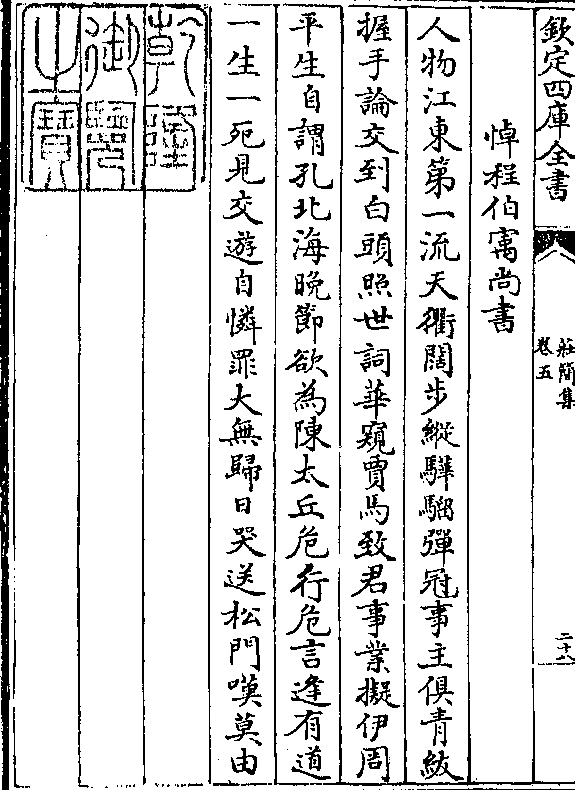 欽定四庫全書
莊簡集
卷五
二十八
悼程伯㝢尚書
人物江東第一流天衢闊步縱驊騮彈冠事主俱青紱
握手論交到白頭照世詞華窺賈馬致君事業擬伊周
平生自謂孔北海晚節欲為陳太丘危行危言逢有道
一生一死見交遊自憐罪大無歸日哭送松門嘆莫由
乾隆
御覽
之寶